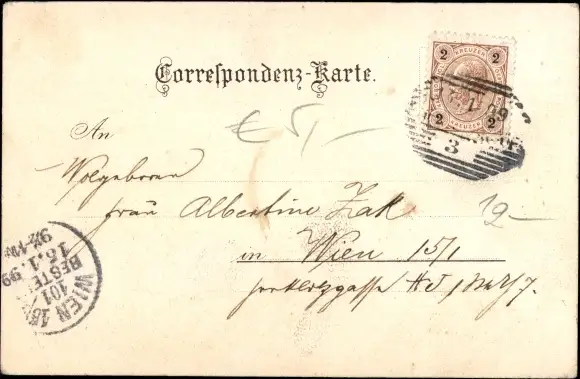 Correspondenz-Karte.
2 KREUZER 2
2 KREUZER 2
3
€ 5,-
An
Wolgeboren
Frau Albertine Zak
12-
in Wien 15/1
WIEN 18
101
BESTELLT
15.1.99